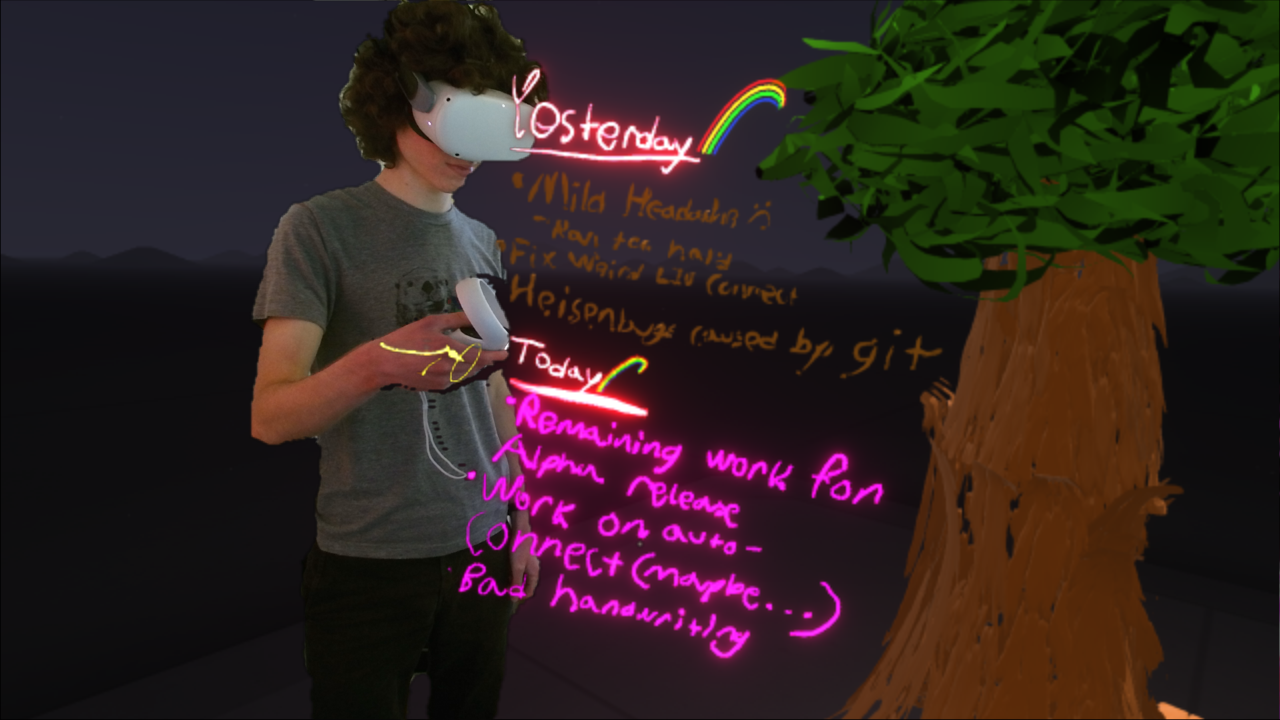 Yosterday
• Mild Headachn :(
- Ran too hard
• Fix Weird LIV Connect
Heisenbugs caused by git
Today
• Remaining work for
Alpha release
• Work on auto-
Connect (maybe...)
• Bad handwriting